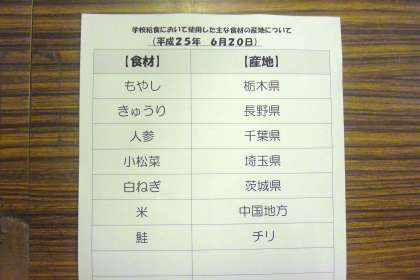 学校給食において使用した主な食材の産地について
（平成２５年　６月２０日）
【食材】　【産地】
もやし　栃木県
きゅうり　長野県
人参　千葉県
小松菜　埼玉県
白ねぎ　茨城県
米　中国地方
鮭　チリ